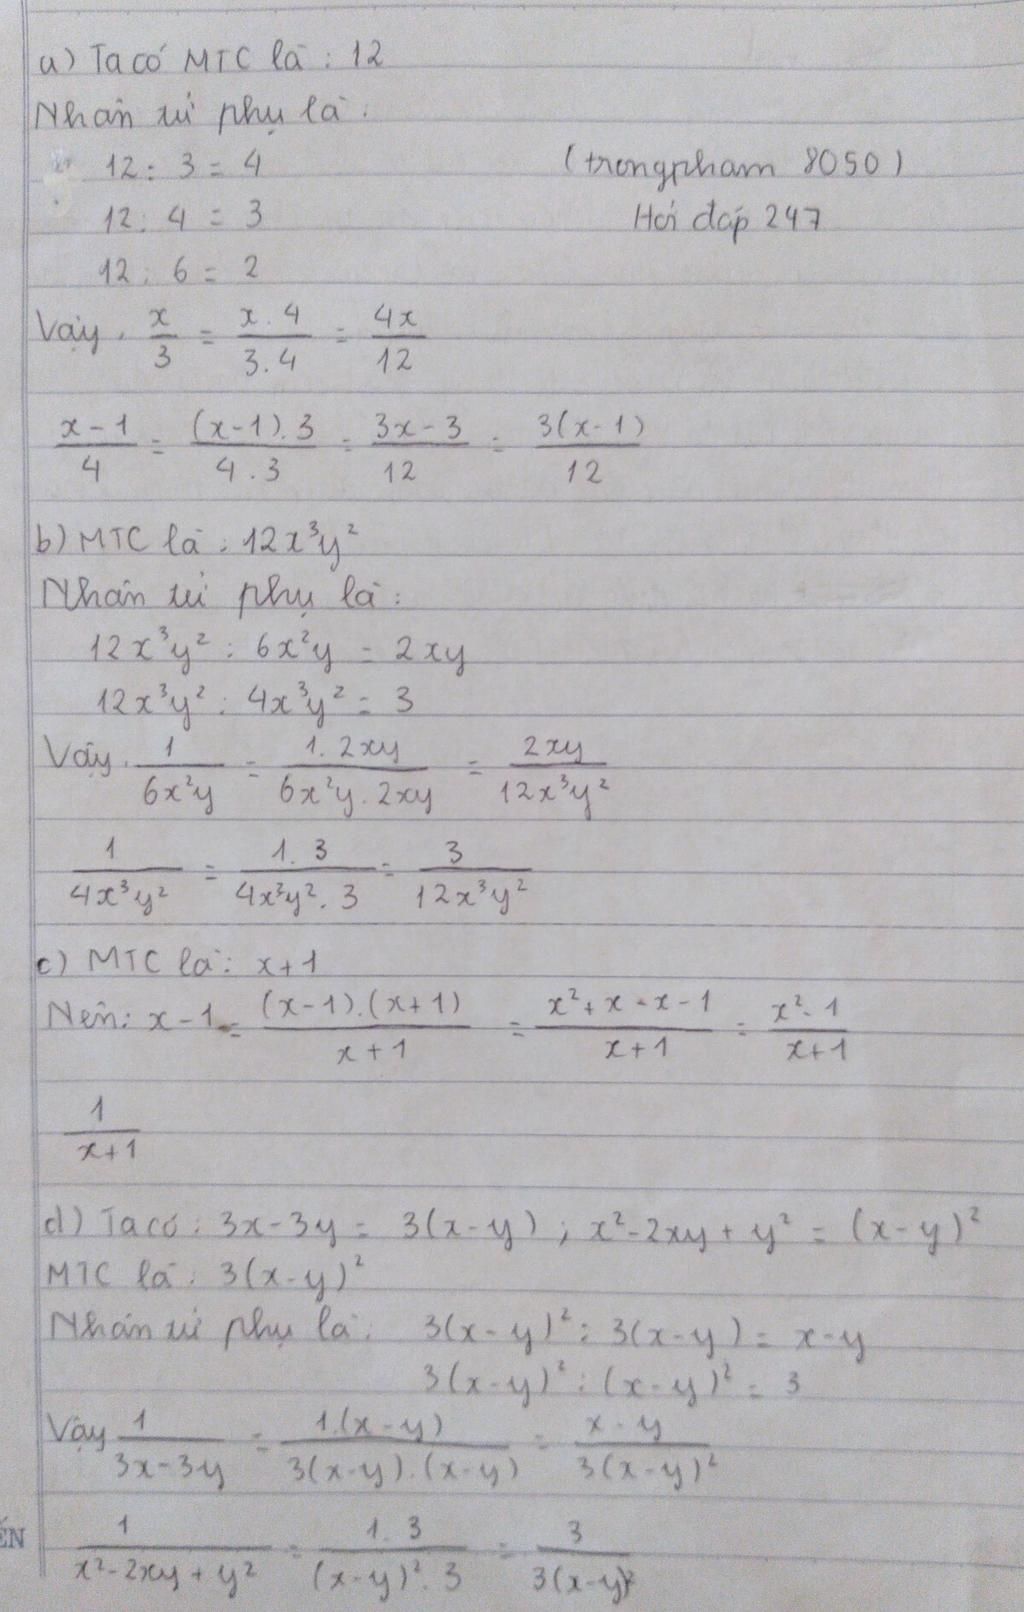 a) Ta có MTC là : 12
Nhân tử phụ là :
12 : 3 = 4
(trongpham 8050)
12 : 4 = 3
Hỏi đáp 247
12 : 6 = 2
Vậy . x/3 = x . 4/3 . 4 = 4x/12
x - 1/4 = (x-1) . 3/4 . 3 = 3x - 3/12 = 3(x-1)/12
b) MTC là : 12x³y²
Nhân tử phụ là :
12x³y² : 6x²y = 2xy
12x³y² : 4x³y² = 3
Vậy . 1/6x²y = 1. 2xy/6x²y . 2xy = 2xy/12x³y²
1/4x³y² = 1. 3/4x³y² . 3 = 3/12x³y²
c) MTC là : x+1
Nên : x - 1 = (x-1).(x+1)/x+1 = x² + x - x - 1/x+1 = x² - 1/x+1
1/x+1
d) Ta có : 3x - 3y = 3(x-y) ; x² - 2xy + y² = (x-y)²
MTC là : 3(x-y)²
Nhân tử phụ là : 3(x-y)² : 3(x-y) = x-y
3(x-y)² : (x-y)² = 3
Vậy 1/3x-3y = 1.(x-y)/3(x-y).(x-y) = x-y/3(x-y)²
ẾN
1/x²-2xy+y² = 1. 3/(x-y)² . 3 = 3/3(x-y)²